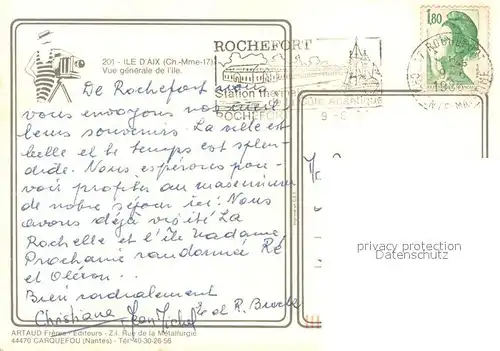 201 - ILE D'AIX (Ch.-Mme-17)
Vue générale de l'île.
ROCHEFORT
Station thermale
Côte Atlantique
ROCHEFORT
1,80
De Rochefort nous
vous envoyons nos meil
leurs souvenirs. La ville est
belle et le temps est splen-
dide. Nous espérons pou-
voir profiter au maximum
de notre séjour ici. Nous
avons déjà visité La
Rochelle et l'île Madame
Prochaine randonnée Ré
et Oléron...
Bien cordialement
Christiane Jean Michel
et R.
privacy protection
Datenschutz
ARTAUD Frères - Editeurs - Z.I. Rue de la Métallurgie
44470 CARQUEFOU (Nantes) - Tél. 40-30-26-56